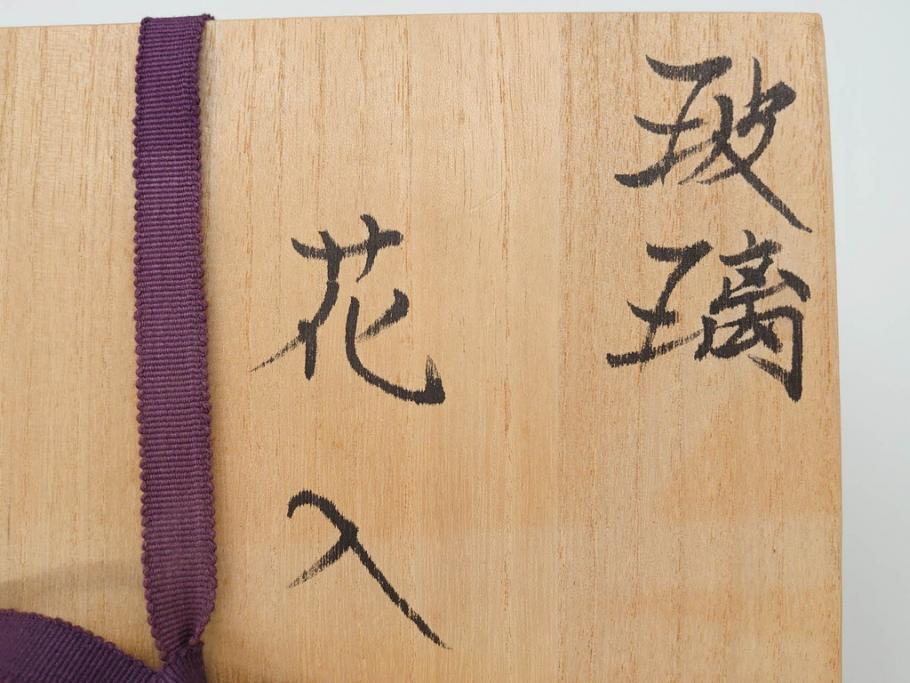 玻璃
花入